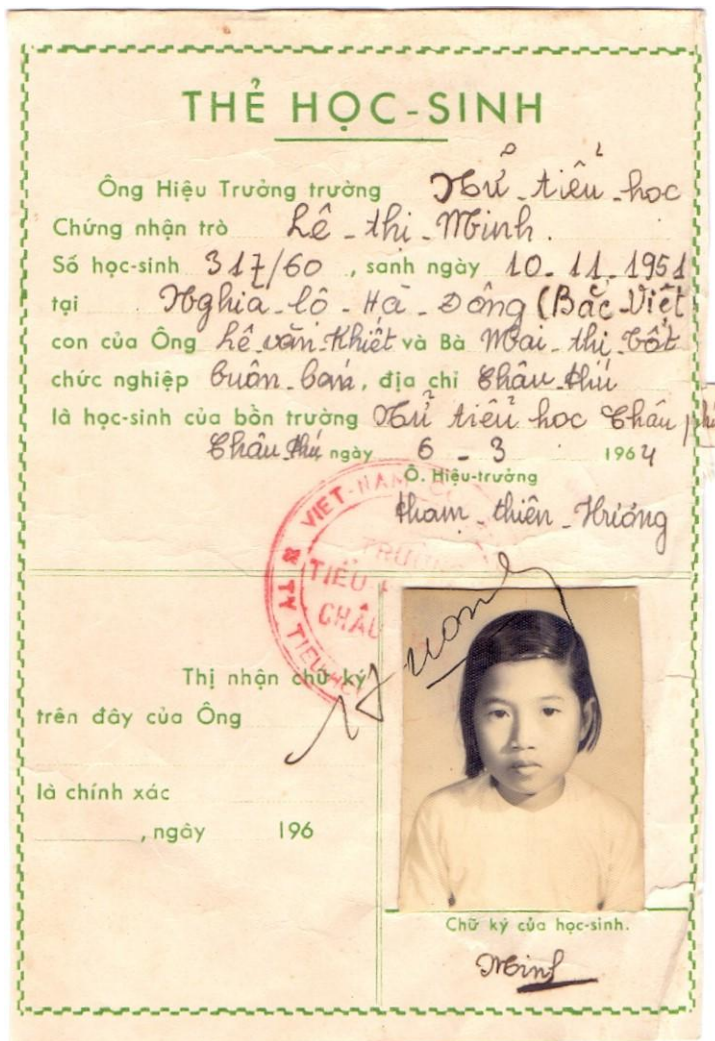 THẺ HỌC-SINH
Ông Hiệu Trưởng trường Nử tiểu học
Chứng nhận trò Lê thị Minh.
Số học-sinh 317/60, sanh ngày 10-11-1951
tại Nghia-lộ-Hà-Đông (Bắc-Việt
con của Ông Lê văn Khiết và Bà Mai thị Tốt
chức nghiệp buôn bán, địa chỉ Châu Phú
là học-sinh của bồn trường Nử tiểu học Châu phú
Châu Phú, ngày 6-3 1964
Ô. Hiệu-trưởng
thiên Hương
VIET-NAM
TRƯỜNG
TIỂU
CHÂU
TY TIỂU-HỌC
Hương
Thị nhận chữ ký
trên đây của Ông
là chính xác
, ngày 196
Chữ ký của học-sinh.
Minh